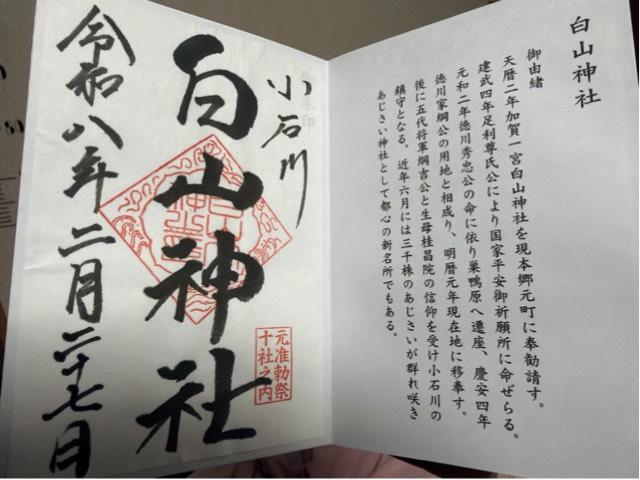 白山神社
御由緒
天暦二年加賀一宮白山神社を現本郷元町に奉勧請す。
建武四年足利尊氏公により国家平安御祈願所に命ぜらる。
元和二年徳川秀忠公の命に依り巣鴨原へ遷座、慶安四年
徳川家綱公の用地と相成り、明暦元年現在地に移奉す。
後に五代将軍綱吉公と生母桂昌院の信仰を受け小石川の
鎮守となる。近年六月には三千株のあじさいが群れ咲き
あじさい神社として都心の新名所でもある。
小石川
白山神社
元准勅祭
十社之内
令和八年二月二十七日